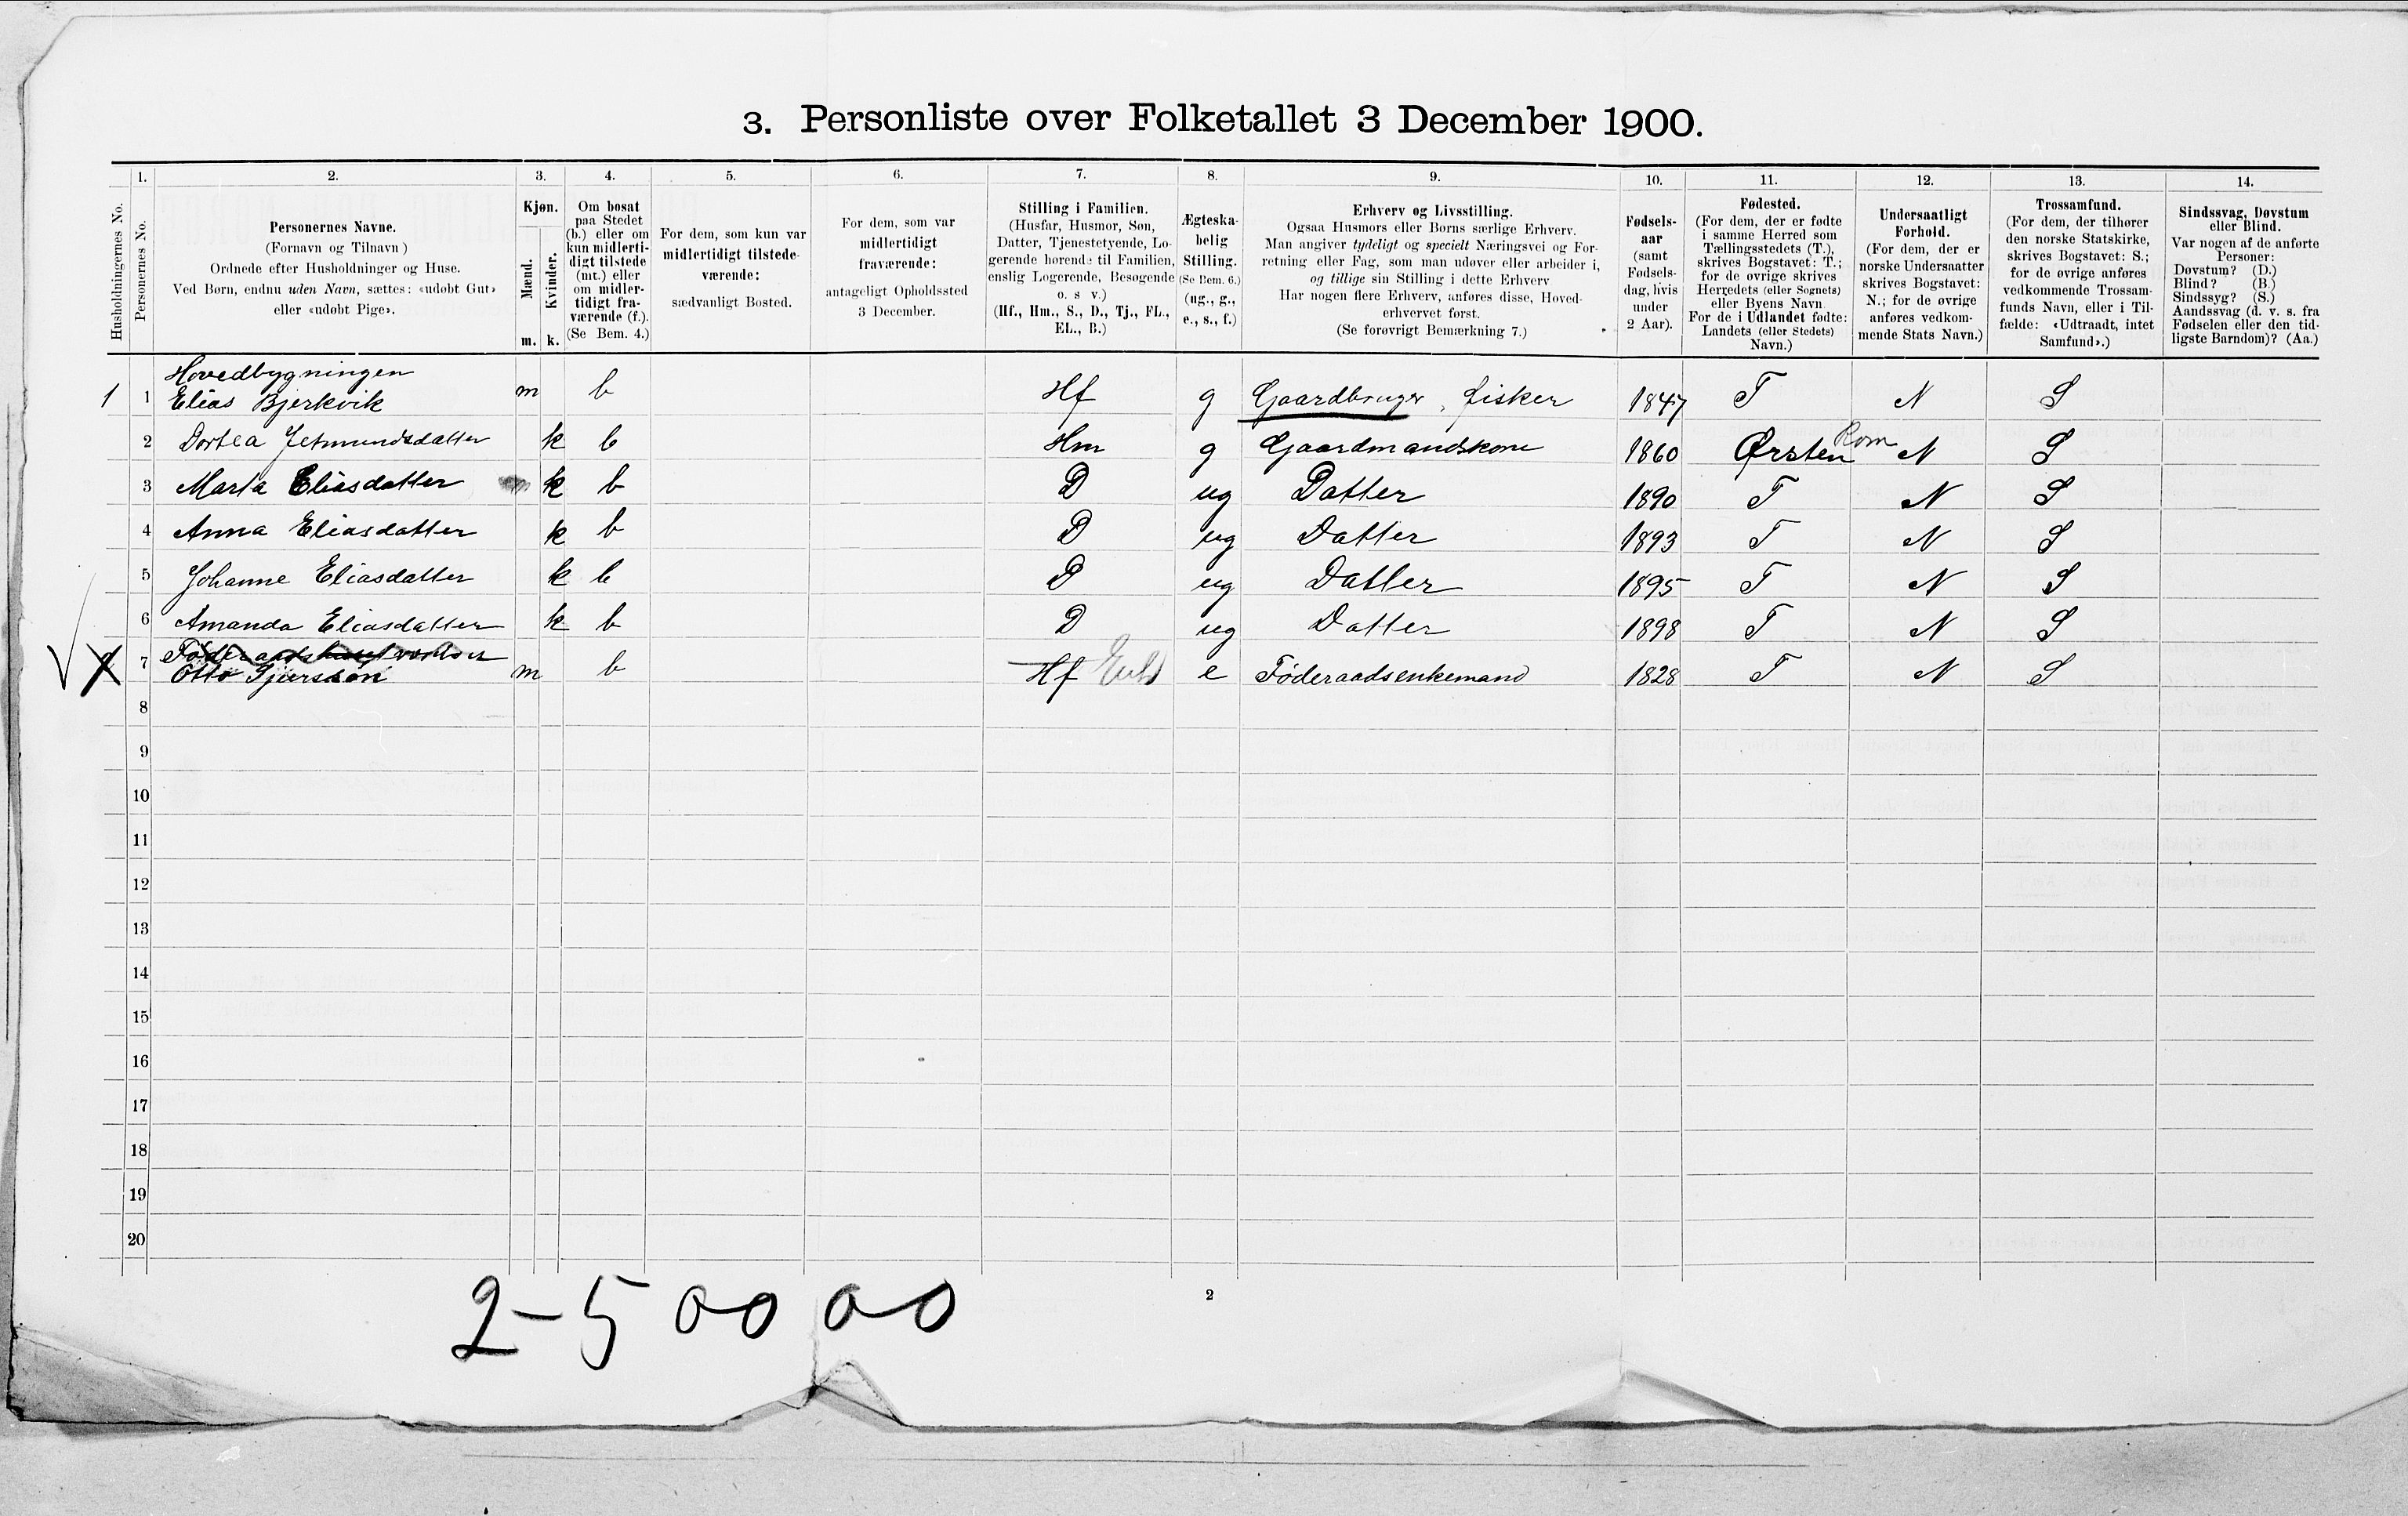 3. Personliste over Folketallet 3 December 1900.
Husholdningernes No.
1. Personernes No.
2. Personernes Navne.
(Fornavn og Tilnavn)
Ordnede efter Husholdninger og Huse.
Ved Børn, endnu uden Navn, sættes: «udøbt Gut»
eller «udøbt Pige».
3. Kjøn.
Mænd. Kvinder.
m. k.
4. Om bosat
paa Stedet
(b.) eller om
kun midlerti-
digt tilstede
(mt.) eller
om midler-
tidigt fra-
værende (f.).
(Se Bem. 4.)
5. For dem, som kun var
midlertidigt tilstede-
værende:
sædvanligt Bosted.
6. For dem, som var
midlertidigt
fraværende:
antageligt Opholdssted
3 December.
7. Stilling i Familien.
(Husfar, Husmor, Søn,
Datter, Tjenestetyende, Lo-
gerende hørende til Familien,
enslig Logerende, Besøgende
o. s v.)
(Hf., Hm., S., D., Tj., FL.,
EL., B.)
8. Ægteska-
belig
Stilling.
(Se Bem. 6.)
(ug., g.,
e., s., f.)
9. Erhverv og Livsstilling.
Ogsaa Husmors eller Børns særlige Erhverv.
Man angiver tydeligt og specielt Næringsvei og For-
retning eller Fag, som man udøver eller arbeider i,
og tillige sin Stilling i dette Erhverv
Har nogen flere Erhverv, anføres disse, Hoved-
erhvervet først.
(Se forøvrigt Bemærkning 7.)
10. Fødsels-
aar
(samt
Fødsels-
dag, hvis
under
2 Aar).
11. Fødested.
(For dem, der er fødte
i samme Herred som
Tællingsstedets (T.),
skrives Bogstavet: T.;
for de øvrige skrives
Herredets (eller Sognets)
eller Byens Navn
For de i Udlandet fødte:
Landets (eller Stedets)
Navn.)
12. Undersaatligt
Forhold.
(For dem, der er
norske Undersaatter
skrives Bogstavet:
N.; for de øvrige
anføres vedkom-
mende Stats Navn.)
13. Trossamfund.
(For dem, der tilhører
den norske Statskirke,
skrives Bogstavet: S.;
for de øvrige anføres
vedkommende Trossam-
funds Navn, eller i Til-
fælde: «Udtraadt, intet
Samfund».)
14. Sindssvag, Døvstum
eller Blind.
Var nogen af de anførte
Personer:
Døvstum? (D.)
Blind? (B.)
Sindssyg? (S.)
Aandssvag (d. v. s. fra
Fødselen eller den tid-
ligste Barndom)? (Aa.)
Hovedbygningen
1 1 Elias Bjerkvik m b Hf g Gaardbruger, fisker 1847 T N S
2 Dortea Jetmundsdatter k b Hm g Gaardmandskone 1860 Ørsten Rom N S
3 Marta Eliasdatter k b D ug Datter 1890 T N S
4 Anna Eliasdatter k b D ug Datter 1893 T N S
5 Johanne Eliasdatter k b D ug Datter 1895 T N S
6 Amanda Eliasdatter k b D ug Datter 1898 T N S
7 Otto m b Hf e Føderaadsenkemand 1828 T N S
8
9
10
11
12
13
14
15
16
17
18
19
20
2-5 00 00
2